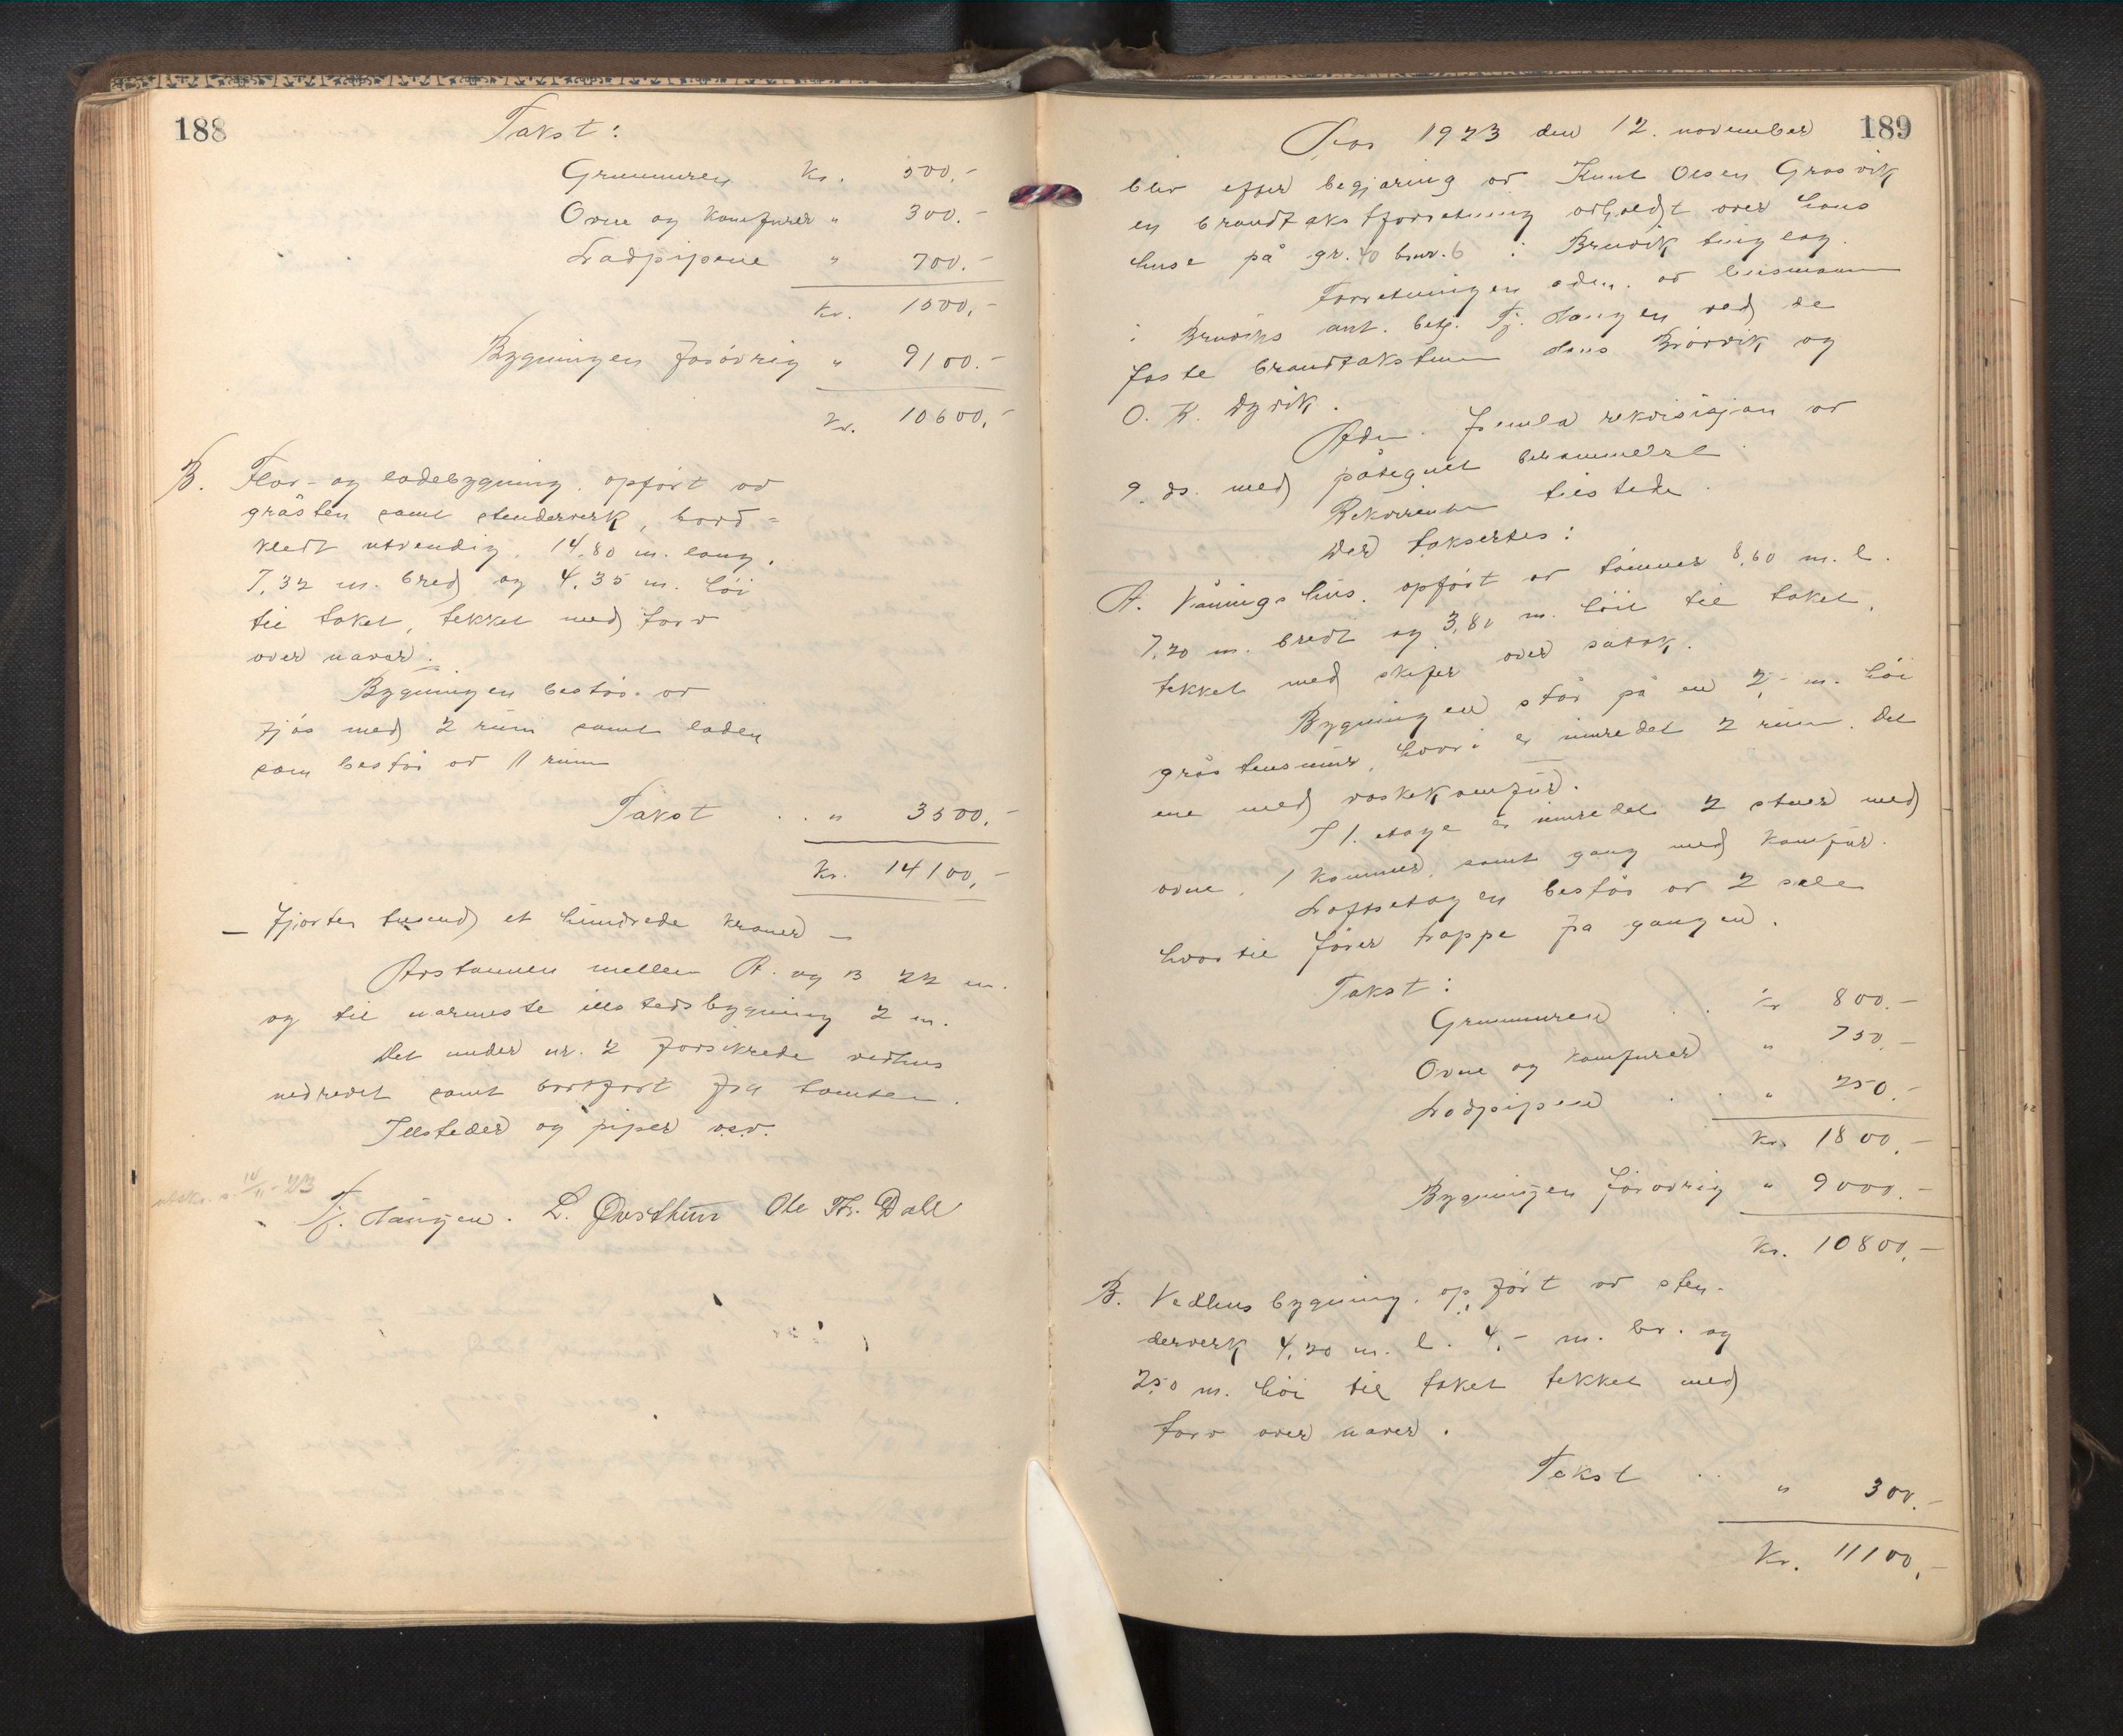 188
Takst:
Grunnmuren Kr. 500.-
Ovne og komfurer " 300.-
Ladpipene " 700.-
Kr. 1500,-
Bygningen forøvrig " 9100.-
Kr. 10600,-
B. Flor- og ladebygning, opført av
gråsten samt stenderverk, bord-
kledt utvendig, 14,80 m. lang,
7,32 m. bred og 4,35 m. høi
til taket, tekket med torv
over næver.
Bygningen består av
fjøs med 2 rum samt laden
som består av 11 rum
Takst . . " 3500.-
Kr. 14100,-
- fjorten tusend et hundrede kroner -
Avstannen mellem A. og B 22 m.
og til nærmeste illstedsbygning 2 m.
Det under nr. 2 forsikrede vedhus
nedrevet samt bortført fra tomten.
Illsteder og piper v.s.v.
utskr. s. 14/11-23
Tj. Haugen. L. Øvsthun Ole Th. Dale
189
Aar 1923 den 12. november
blev efter begjæring av Knut Olsen Grasvik
en brandtakstforretning avholdt over hans
huse på gr. 40 bnr. 6 i Bruvik tinglag.
Forretningen adm. av lensmann
i Bruviks ant. betj. Tj. Haugen ved de
faste brandtakstmenn Hans Brørvik og
O. K. Dyvik.
Adm. fremla rekvisisjon av
9. ds. med påtegnet berammelse.
Rekvirenten tilstede.
Der taksertes:
A. Våningshus, opført av tømmer 8,60 m. l.
7,20 m. bredt og 3,80 m. høit til taket,
tekket med skifer over sutak.
Bygningen står på en 2,- m. høi
gråstensmur, hvori er innredet 2 rum. Det
ene med vaskekomfur.
I 1. etage er innredet 2 stuer med
ovne, 1 kammer, samt gang med komfur.
Loftsetagen består av 2 sale
hvortil fører trappe fra gangen.
Takst:
Grunnmuren . . Kr 800.-
Ovne og komfurer " 750.-
Ladpipen . . " 250.-
Kr. 1800,-
Bygningen forøvrig " 9000.-
Kr. 10800,-
B. Vedhusbygning, opført av sten-
derverk 4,20 m. l. 4,- m. br. og
2,50 m. høi til taket tekket med
torv over næver.
Takst . . " 300.-
Kr. 11100,-